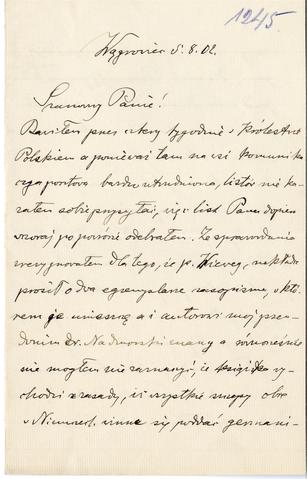 1245.
Wągrowiec 5.8.02.
Szanowny Panie!
Bawiłem przez cztery tygodnie w Królestwie
Polskiem a ponieważ tam na wsi komunika
cya pocztowa bardzo utrudniona, listów nie ka
załem sobie przysyłać, więc i list Pana dopiero
wczoraj po powrocie odebrałem. Ze sprawozdania
zrezygnowałem dla tego, że p. Vieweg, nakładca
prosił o dwa egzemplarze czasopisma, w któ
rem je umieszczę a i autorowi mój pseu
donim Dr. Nadmorski znany a równocześnie
nie mogłem nie zaznaczyć, że książka wy
chodzi z zasady, iż wszystkie szczepy obce
w Niemczech winne się poddać germani-